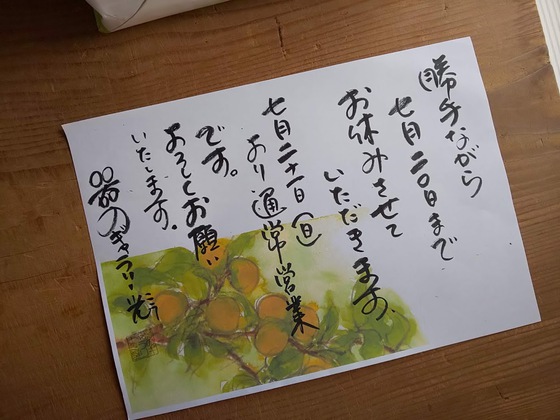 勝手ながら
七月二〇日まで
お休みさせて
いただきます。
七月二十一日(日)
より通常営業
です。
よろしくお願い
いたします。
器のギャラリー彩